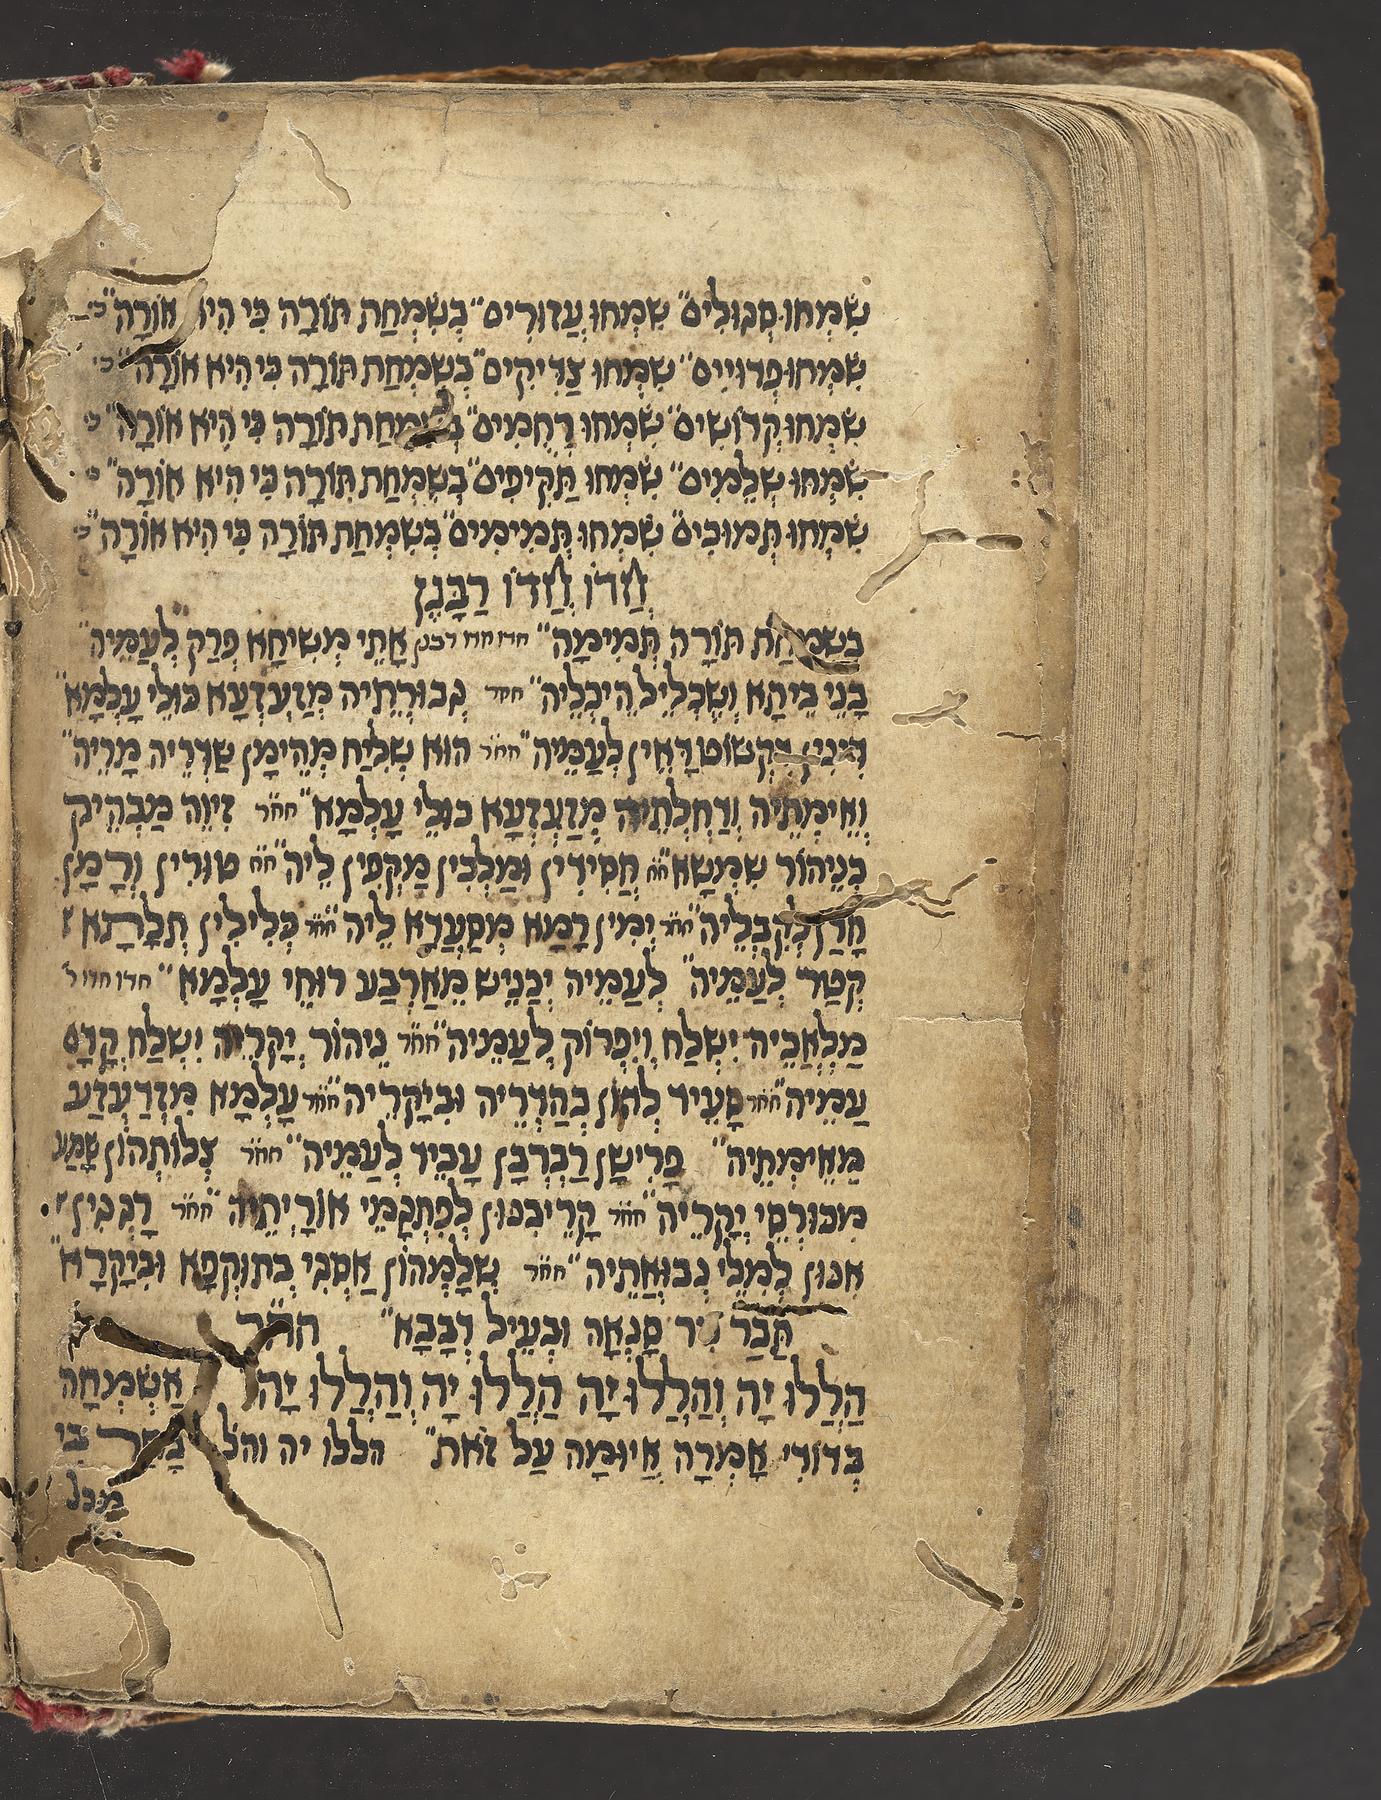 שִׂמְחוּ סְגוּלִים״ שִׂמְחוּ עֲדוּרִים״ בְּשִׂמְחַת תּוֹרָה כִּי הִיא אוֹרָה״ כי
שִׂמְחוּ פְּדוּיִים״ שִׂמְחוּ צַדִּיקִים״ בְּשִׂמְחַת תּוֹרָה כִּי הִיא אוֹרָה״ כי
שִׂמְחוּ קְדוֹשִׁים״ שִׂמְחוּ רְחֻמִים״ בְּשִׂמְחַת תּוֹרָה כִּי הִיא אוֹרָה״ כי
שִׂמְחוּ שְׁלֵמִים״ שִׂמְחוּ תַּקִּיפִים״ בְּשִׂמְחַת תּוֹרָה כִּי הִיא אוֹרָה״ כי
שִׂמְחוּ תְּמוּכִים״ שִׂמְחוּ תְּמִימִים״ בְּשִׂמְחַת תּוֹרָה כִּי הִיא אוֹרָה״ כי
חֲדוֹ חֲדוֹ רַבָּנָן
בְּשִׂמְחַת תּוֹרָה תְּמִימָה״ חדו חדו רבנן אֲתֵי מְשִׁיחָא פְּרַק לְעַמֵּיהּ״
בָּנֵי בֵיתָא וְשַׁכְלֵיל הֵיכְלֵיהּ״ חחר גְּבוּרְתֵיהּ מְזַעְזְעָא כּוּלֵּי עָלְמָא״
בִּקְשׁוֹט דָּאֵין לְעַמֵּיהּ״ חחר הוּא שְׁלִיחַ מְהֵימָן שַׁדְּרֵיהּ מָרֵיהּ״
וְאֵימְתֵיהּ וְדַחְלְתֵיהּ מְזַעְזְעָא כּוּלֵּי עָלְמָא״ חחר זִיוֵיהּ מַבְהֵיק
כְּנֵיהוֹר שִׁמְשָׁא״ חח חֲסִידִין וּמַלְכִין מַקְפִין לֵיהּ״ חח טוּרִין וְרָמָן
חָדַן לְקִבְלֵיהּ״ חחר יְמִין רָמָא מְסַעֲדָא לֵיהּ״ חחר כְּלִילִין תְּלָתָא
קְטַר לְעַמֵּיהּ״ לְעַמֵּיהּ יְכַנֵּישׁ מֵאַרְבַּע רוּחֵי עָלְמָא״ חדו חדו ר
מַלְאֲכֵיהּ יִשְׁלַח וְיִפְרוֹק לְעַמֵּיהּ״ חחר נֵיהוֹר יְקָרֵיהּ יִשְׁלַח קֳדָם
עַמֵּיהּ״ חחר סָעֵיד לְהוֹן בְּהַדְרֵיהּ וּבִיקָרֵיהּ״ חחר עָלְמָא מִזְדַּעְזַע
מֵאֵימְתֵיהּ״ פְּרִישָׁן רַבְרְבָן עָבֵיד לְעַמֵּיהּ״ חחר צְלוֹתְהוֹן שָׁמַע
מִכּוּרְסֵי יְקָרֵיהּ״ חחר קָרֵיבִנּוּן לְפִתְגָּמֵי אוֹרָיְתֵיהּ״ חחר
אִנּוּן לְמִלֵּי נְבוּאֲתֵיהּ״ חחר שְׁלָמְהוֹן אַסְגִּי בְּתוּקְפָא וּבִיקָרָא״
תְּבַר סָנְאָה וּבְעֵיל דְּבָבָא״ חחר
הַלְלוּ יָהּ וְהַלְלוּ יָהּ הַלְלוּ יָהּ וְהַלְלוּ יָהּ אֶשְׂמְחָה
בְּדוֹדִי אָמְרָה אֲיוּמָה עַל זֹאת״ הללו יה והל בָּחַר בִּי
מכל